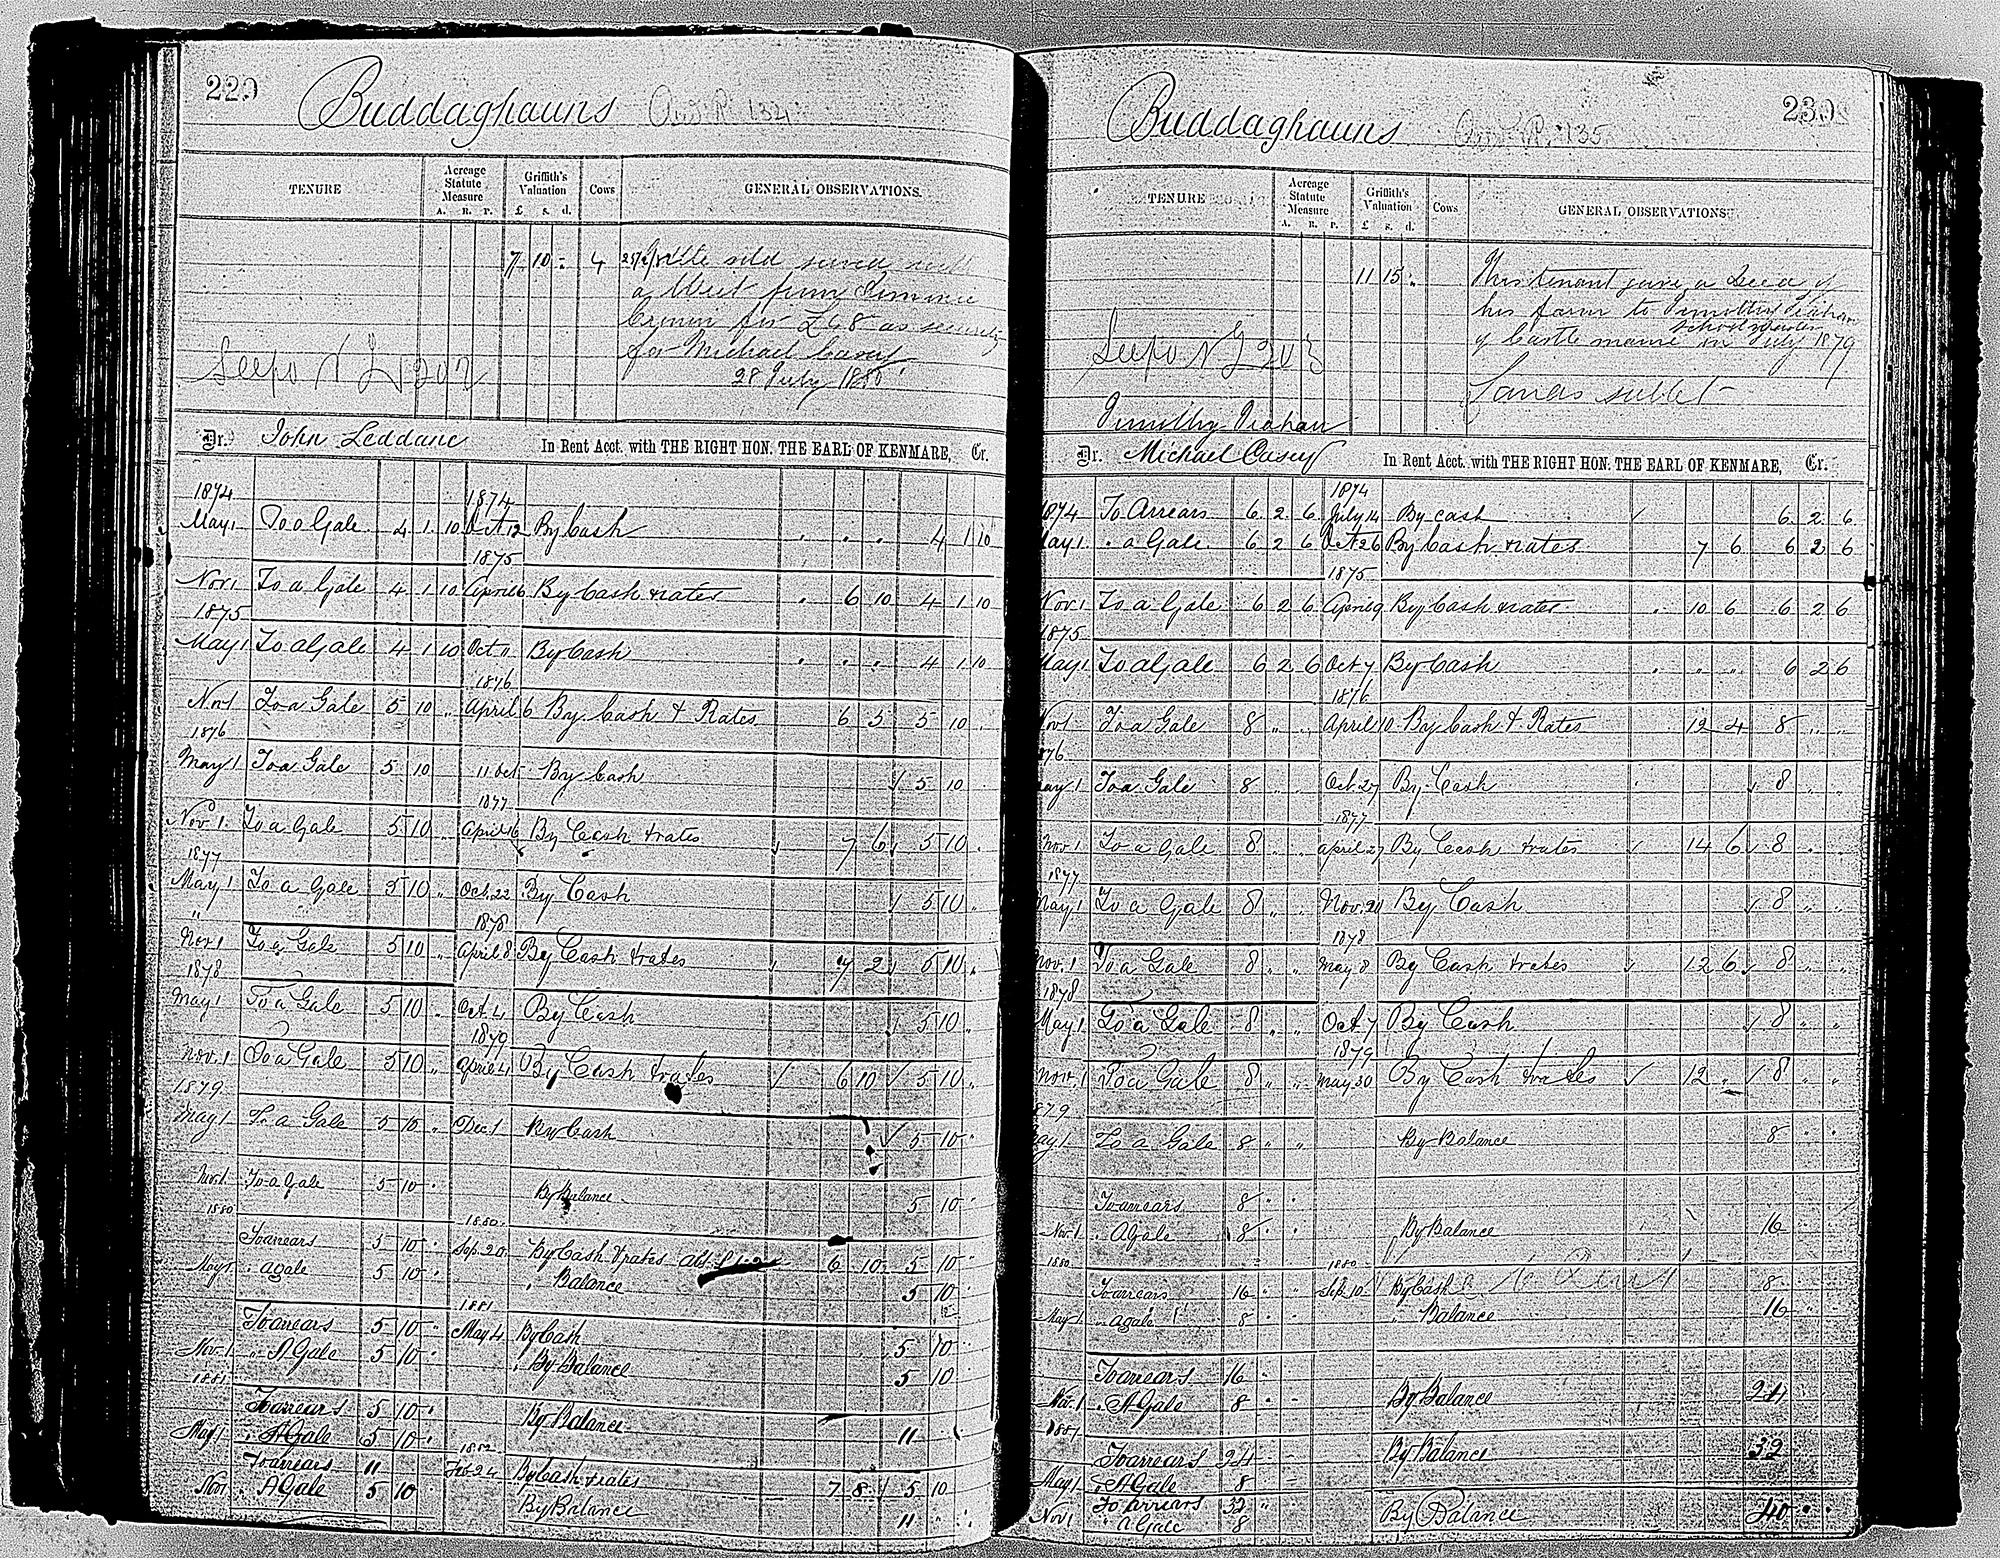 229
Buddaghauns
TENURE
Acreage Statute Measure
A. R. P.
Griffith's Valuation
£ s. d.
Cows
GENERAL OBSERVATIONS.
7 10 - 4 sold
a Writ from
for £48 as security
for Michael Casey
28 July 1880
Dr. John Leddane In Rent Acct. with THE RIGHT HON. THE EARL OF KENMARE, Cr.
1874 1874
May 1 To a Gale 4 1 10 Oct 12 By Cash 4 1 10
1875
Nov 1 To a Gale 4 1 10 April 6 By Cash & rates 6 10 4 1 10
1875
May 1 To a Gale 4 1 10 Oct 11 By Cash 4 1 10
1876
Nov 1 To a Gale 5 10 April 6 By Cash & Rates 6 3 5 10
1876
May 1 To a Gale 5 10 11 Oct By Cash 5 10
1877
Nov 1 To a Gale 5 10 April 16 By Cash & rates 7 6 5 10
1877
May 1 To a Gale 5 10 Oct. 22 By Cash 5 10
" 1878
Nov. 1 To a Gale 5 10 April 8 By Cash & rates 7 2 5 10
1878
May 1 To a Gale 5 10 Oct. 4 By Cash 5 10
1879
Nov. 1 To a Gale 5 10 April 4 By Cash & rates 6 10 5 10
1879
May 1 To a Gale 5 10 Dec. 1 By Cash 5 10
Nov. 1 To a Gale 5 10 By Balance 5 10
1880 1880
To arrears 5 10 Sep. 20 By Cash & rates 6 10 5 10
May 1 " a gale 5 10 " Balance 5 10
1881
To arrears 5 10 May 4 By Cash 5 10
Nov. 1 " A Gale 5 10 " By Balance 5 10
1881
To arrears 5 10 By Balance 11
May 1 " A Gale 5 10
1882
To arrears 11 Feb 24 By Cash & rates 7 8 5 10
Nov 1 " A Gale 5 10 By Balance 11
230
Buddaghauns
TENURE
Acreage Statute Measure
A. R. P.
Griffith's Valuation
£ s. d.
Cows
GENERAL OBSERVATIONS
11 15 - This tenant gave a Deed of
his farm to Timothy
of Castlemaine on July 1879
Lands sublet
Timothy
Dr. Michael Casey In Rent Acct. with THE RIGHT HON. THE EARL OF KENMARE, Cr.
1874
1874 To Arrears 6 2 6 July 14 By cash 6 2 6
May 1 " a Gale 6 2 6 Oct 26 By Cash & rates 7 6 6 2 6
1875
Nov. 1 To a Gale 6 2 6 April 9 By Cash & rates 10 6 6 2 6
1875
May 1 To a Gale 6 2 6 Oct 7 By Cash 6 2 6
1876
Nov 1 To a Gale 8 " " April 10 By Cash & Rates 12 4 8 " "
76
May 1 To a Gale 8 Oct. 27 By Cash 8
1877
Nov. 1 To a Gale 8 April 27 By Cash & rates 14 6 8
1877
May 1 To a Gale 8 " " Nov. 21 By Cash 8 " "
1878
Nov. 1 To a Gale 8 " " May 8 By Cash & rates 12 6 8 " "
1878
May 1 To a Gale 8 " " Oct 7 By Cash 8 " "
1879
Nov. 1 To a Gale 8 " " May 30 By Cash & rates 12 " 8 " "
1879
May 1 To a Gale 8 " " By Balance 8 " "
To arrears 8 " "
Nov. 1 " A Gale 8 " By Balance 16
1880 1880
To arrears 16 " " Sep. 10 By Cash 8
May 1 " a gale 8 " " " Balance 16
To arrears 16
Nov. 1 " A Gale 8 By Balance 24
1881
To arrears 24 By Balance 32
May 1 " A Gale 8
To Arrears 32
Nov 1 " A Gale 8 By Balance 40